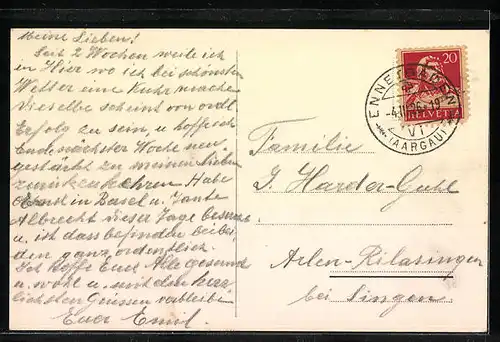 Meine Lieben!
Seit 2 Wochen weile ich
in Hier wo ich bei schönsten
Wetter eine Kur mache
Dieselbe scheint von ordl
Erfolg zu sein, u hoffe ich
Ende nächster Woche neu
gestärkt zu meinen Lieben
zurückzukehren. Habe
Ernst in Basel u. Tante
Albrecht dieser Tage besucht
u. ist das befinden bei bei-
den ganz ordentlich.
Ich hoffe Euch Alle gesund
u. wohl u. mit den herz-
lichsten Grüssen verbleibe
Euer Emil.
20
HELVETIA
ENNETBADEN
VI
(AARGAU)
Familie
J. Harder-
Arlen-Rilasingen
bei Singen